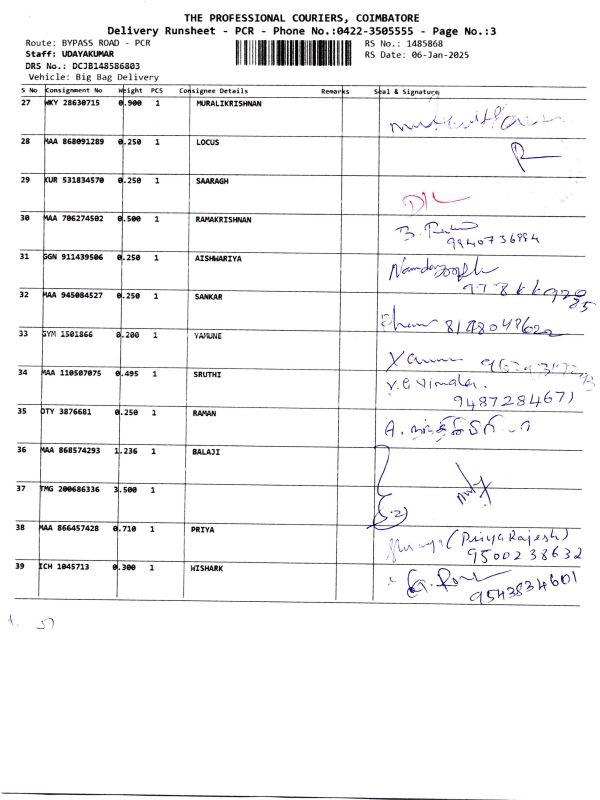 THE PROFESSIONAL COURIERS, COIMBATORE
Delivery Runsheet - PCR - Phone No.:0422-3505555 - Page No.:3
Route: BYPASS ROAD - PCR RS No.: 1485868
Staff: UDAYAKUMAR RS Date: 06-Jan-2025
DRS No.: DCJB148586803
Vehicle: Big Bag Delivery
S No Consignment No Weight PCS Consignee Details Remarks Seal & Signature
27 WKY 28630715 0.900 1 MURALIKRISHNAN
28 MAA 868091289 0.250 1 LOCUS
29 KUR 531834570 0.250 1 SAARAGH
30 MAA 706274502 0.500 1 RAMAKRISHNAN
9940736994
31 GGN 911439506 0.250 1 AISHWARIYA
32 MAA 945084527 0.250 1 SANKAR
33 GYM 1501866 0.200 1 YAMUNE
34 MAA 110507075 0.495 1 SRUTHI V.G Vimala.
9487284671
35 OTY 3876681 0.250 1 RAMAN
36 MAA 868574293 1.236 1 BALAJI
37 TMG 200686336 3.500 1
38 MAA 866457428 0.710 1 PRIYA (Priya Rajesh)
9500238632
39 ICH 1045713 0.300 1 WISHARK
9543834601